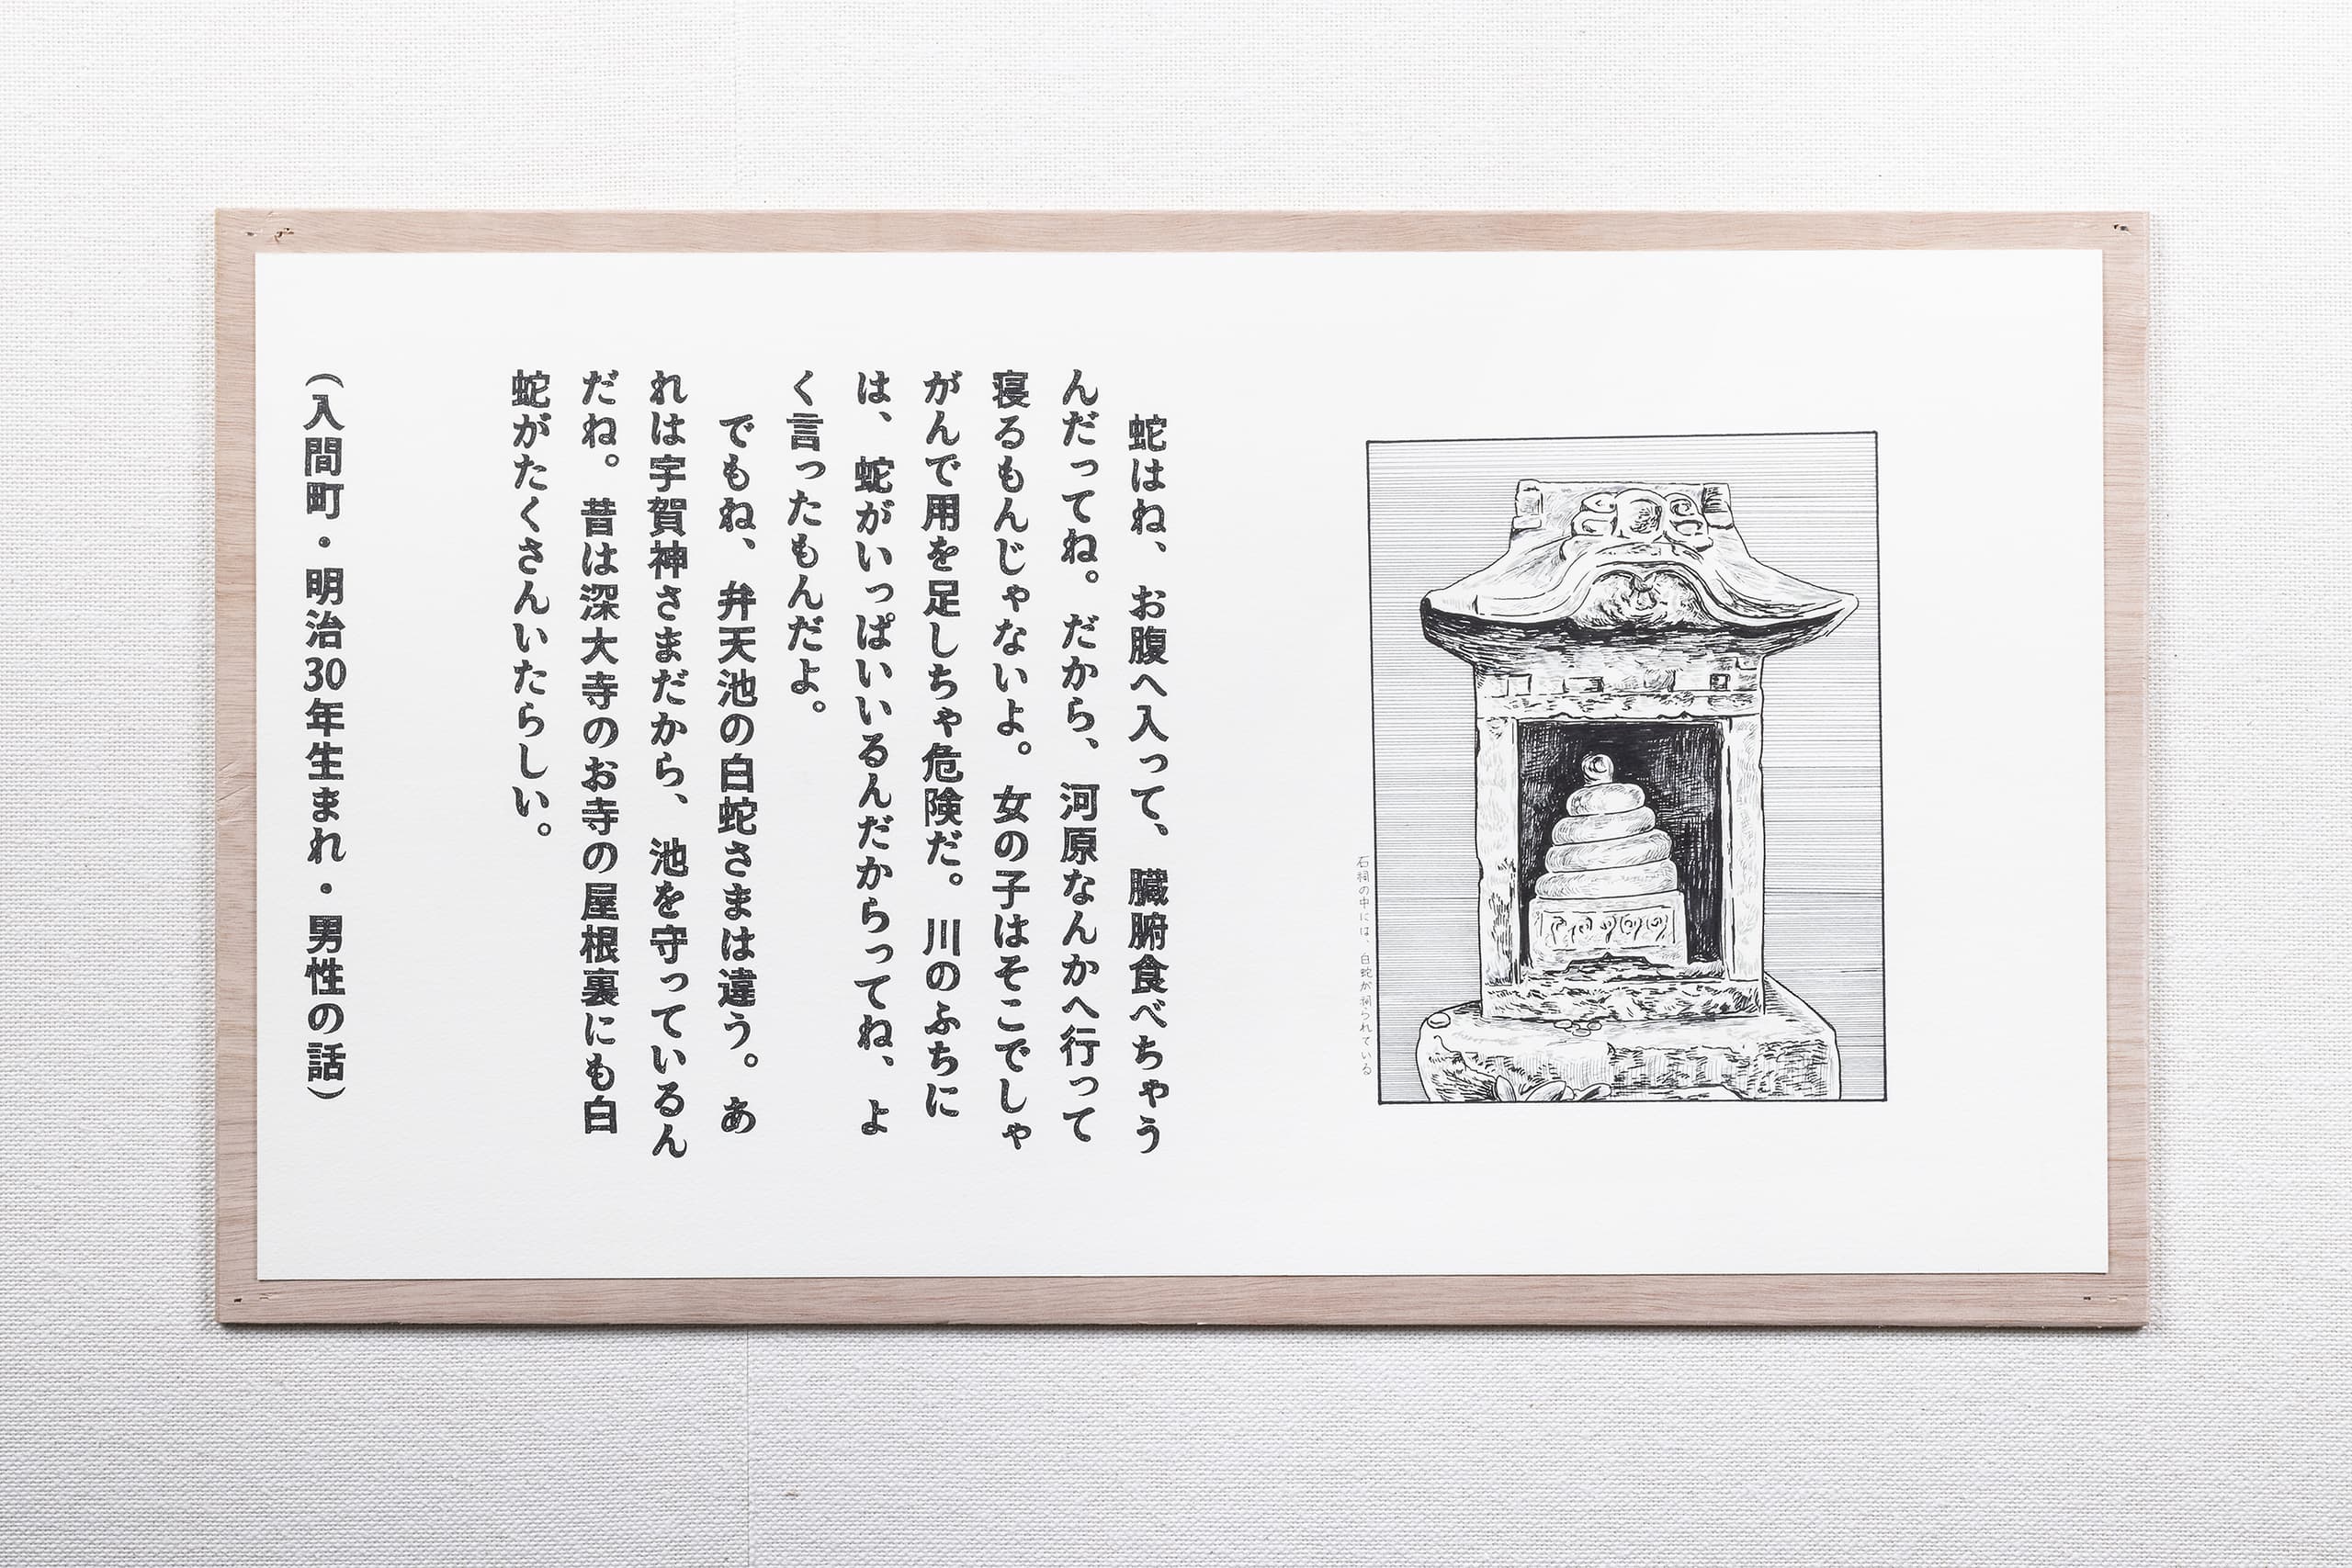 石祠の中には、白蛇が祠られている
蛇はね、お腹へ入って、臓腑食べちゃう
んだってね。だから、河原なんかへ行って
寝るもんじゃないよ。女の子はそこでしゃ
がんで用を足しちゃ危険だ。川のふちに
は、蛇がいっぱいいるんだからってね、よ
く言ったもんだよ。
でもね、弁天池の白蛇さまは違う。あ
れは宇賀神さまだから、池を守っているん
だね。昔は深大寺のお寺の屋根裏にも白
蛇がたくさんいたらしい。
（入間町・明治30年生まれ・男性の話）